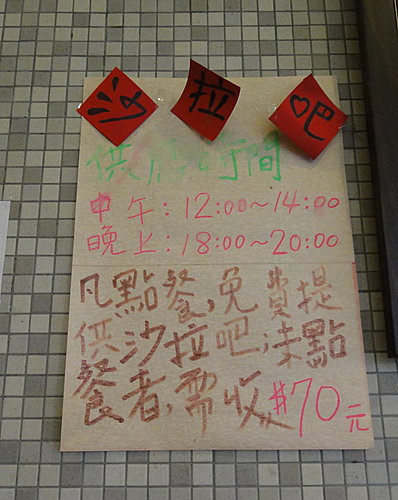 沙拉吧
供應時間
中午:12:00~14:00
晚上:18:00~20:00
凡點餐,免費提
供沙拉吧,未點
餐者,需收$70元